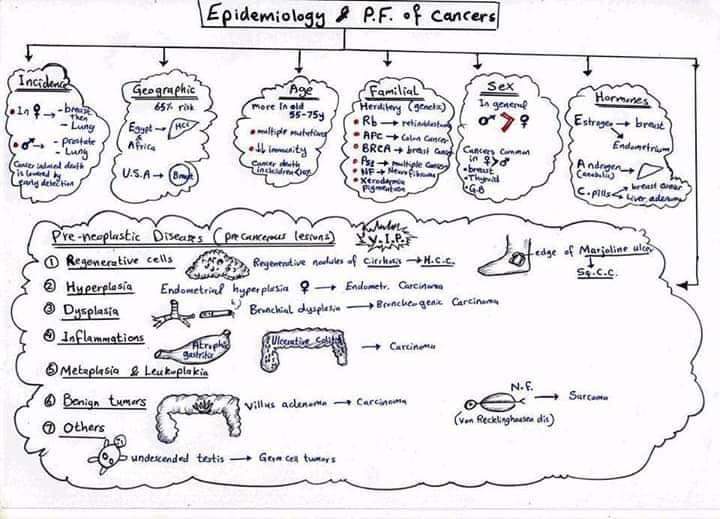 Epidemiology & P.F. of Cancers
Incidence
• In ♀ → - breast
then
- Lung
• ♂ → - prostate
- Lung
Cancer induced death
is lowered by
early detection
Geographic
65% risk
Egypt &
Africa → HCC
U.S.A → Breast
Age
more in old
55-75y
• multiple mutations
• ↓↓ immunity
Cancer death
in children <10%
Familial
Herditery (genetic)
• Rb → retinoblastoma
• APC → Colon Cancer
• BRCA → breast Cancer
• P53 → multiple Cancers
• NF → Neurofibroma
• Xeroderma
pigmentation
Sex
In general
♂ > ♀
Cancers common
in ♀ > ♂
• breast
• Thyroid
• G.B
Hormones
Estrogen → breast
Endometrium
Androgen →
(anabolic)
C. pills → breast cancer
Liver adenoma
Pre-neoplastic Diseases (precancerous lesions)
V.I.P.
① Regenerative cells
Regenerative nodules of Cirrhosis → H.C.C.
edge of Marjoline ulcer
Sq.C.C.
② Hyperplasia
Endometrial hyperplasia ♀ → Endometr. Carcinoma
③ Dysplasia
Bronchial dysplasia → Bronchogenic Carcinoma
④ Inflammations
Atrophic
gastritis
Ulcerative Colitis
→ Carcinoma
⑤ Metaplasia & Leukoplakia
⑥ Benign tumors
Villus adenoma → Carcinoma
N.F.
→ Sarcoma
(Von Recklinghausen dis)
⑦ Others
undescended testis → Germ cell tumors